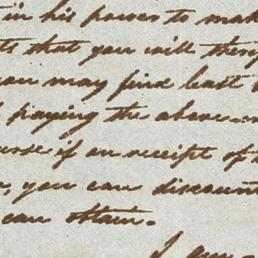 in his power to mak
ts that you will ther
can may find best t
paying the above
urse if on receipt of
you can discount
can obtain.
I am